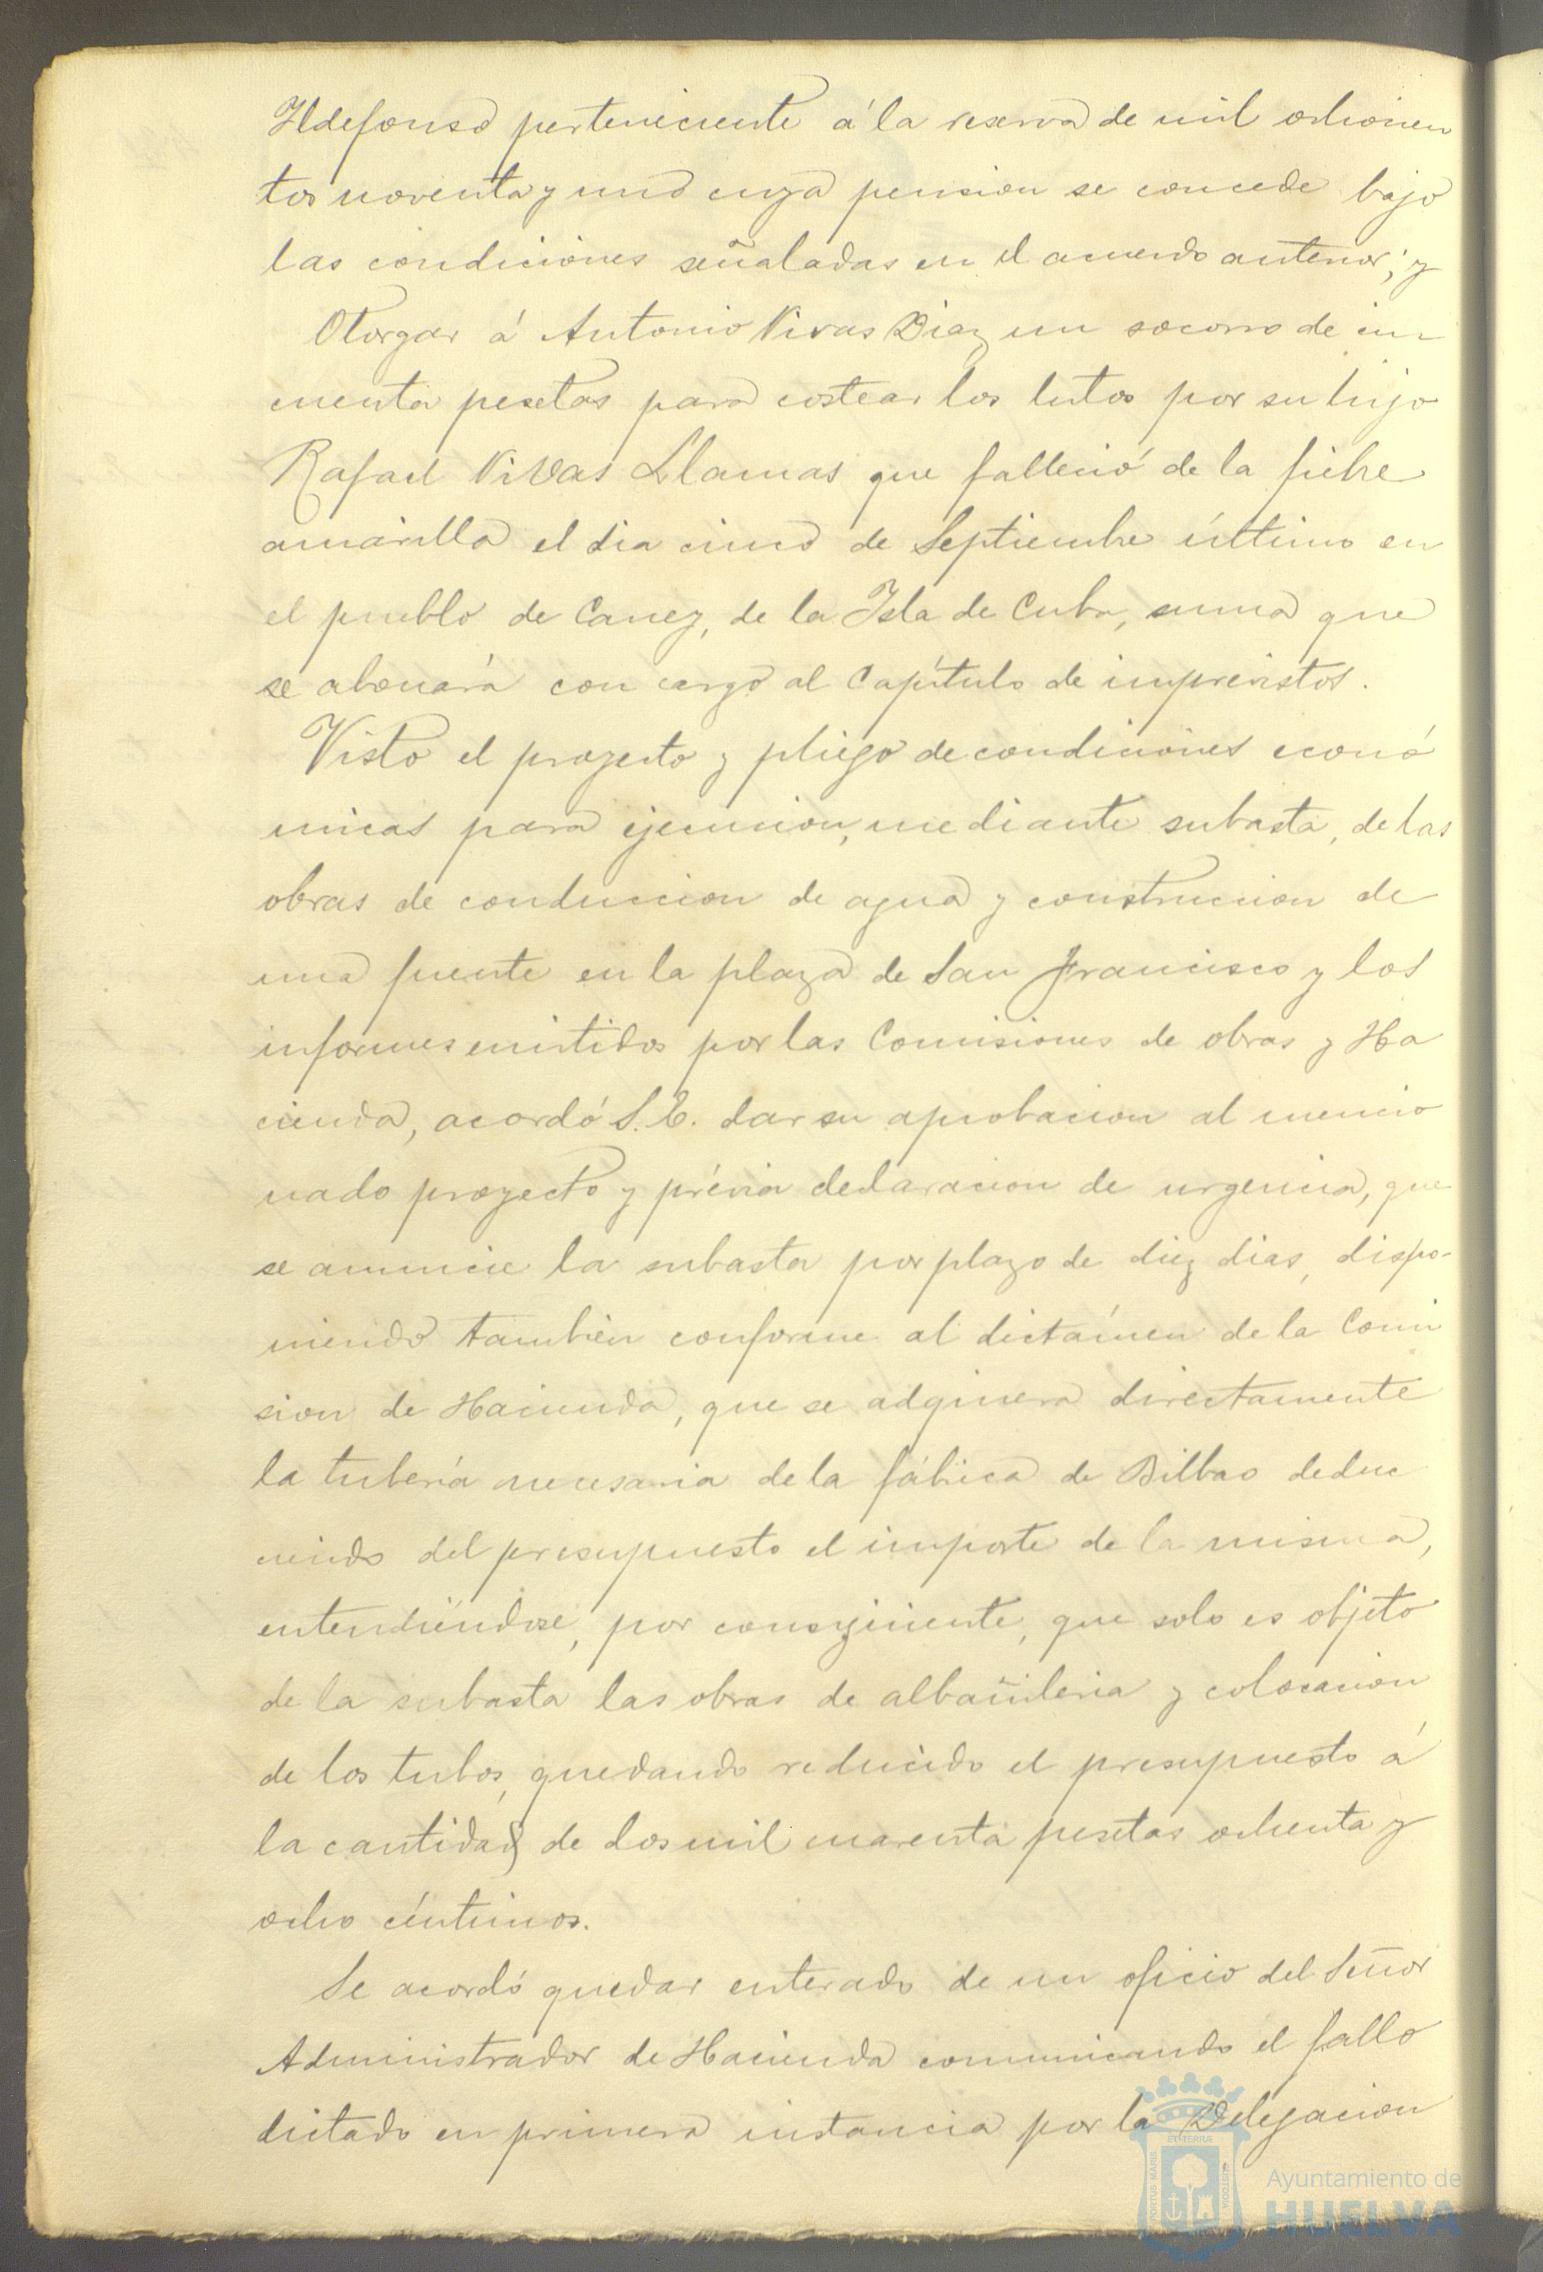 Ildefonso perteneciente á la reserva de mil ochocien
tos noventa y uno cuya pension se concede bajo
las condiciones señaladas en el acuerdo anterior; y
Otorgar á Antonio Vivas Diaz un socorro de cin
cuenta pesetas para costear los lutos por su hijo
Rafael Vivas Llamas que falleció de la fiebre
amarilla el dia cinco de Septiembre último en
el pueblo de Caney, de la Isla de Cuba, suma que
se abonará con cargo al Capítulo de imprevistos.
Visto el proyecto y pliego de condiciones econó
micas para ejecucion, mediante subasta, de las
obras de conduccion de agua y construccion de
una fuente en la plaza de San Francisco y los
informes emitidos por las Comisiones de obras y Ha
cienda, acordó S.E. dar su aprobacion al mencio
nado proyecto y prévia declaracion de urgencia, que
se anuncie la subasta por plazo de diez dias, dispo-
niendo tambien conforme al dictámen de la Comi
sion de Hacienda, que se adquiera directamente
la tubería necesaria de la fábrica de Bilbao dedu
ciendo del presupuesto el importe de la misma,
entendiéndose, por consiguiente, que solo es objeto
de la subasta las obras de albañileria y colocacion
de los tubos, quedando reducido el presupuesto á
la cantidad de dos mil cuarenta pesetas ochenta y
ocho céntimos.
Se acordó quedar enterado de un oficio del Señor
Administrador de Hacienda comunicando el fallo
dictado en primera instancia por la Delegacion
PORTUS MARIS
ET TERRÆ
CUSTODIA
Ayuntamiento de
HUELVA